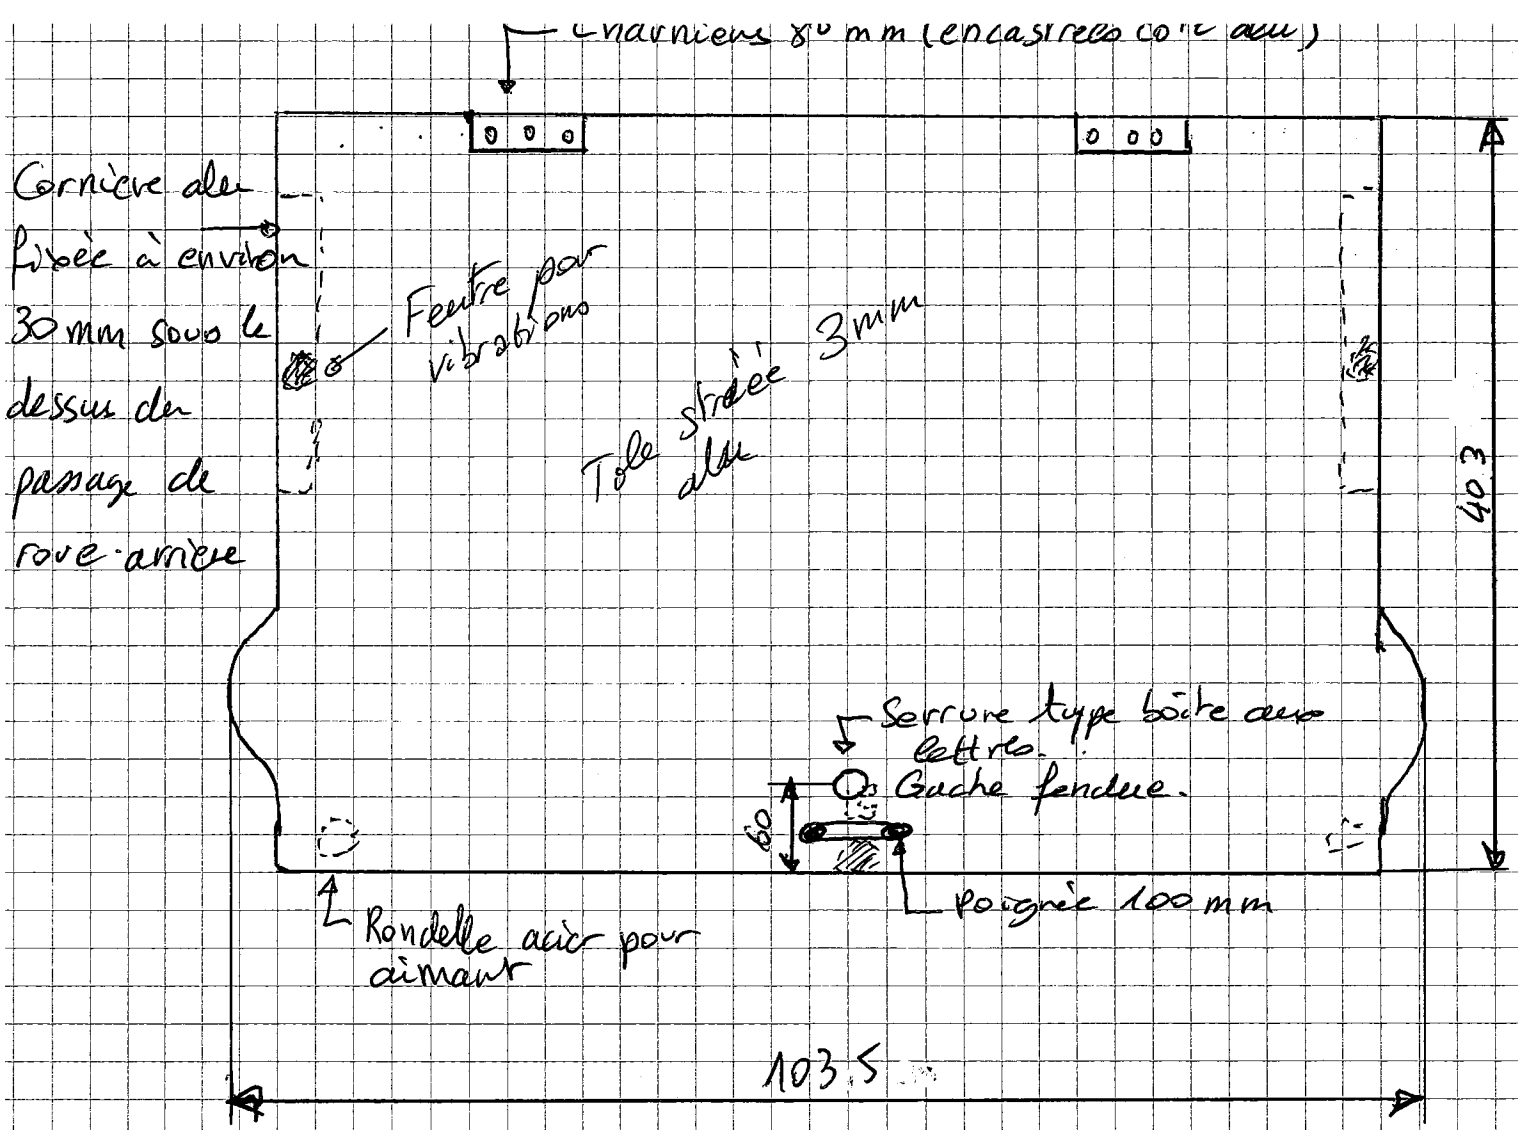 Charnières 80 mm (encastrées côté alu)
Cornière alu
fixée à environ
30 mm sous le
dessus du
passage de
roue arrière
Feutre par
vibrations
Tole striéé 3mm
alu
40.3
Serrure type boîte aux
lettres.
Gache fendue.
60
Poignée 100 mm
Rondelle acier pour
aimant
103.5